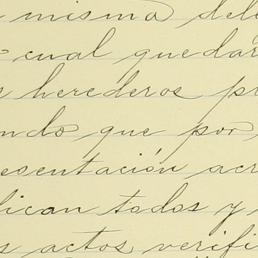 misma del
cual quedar
herederos pr
ndo que por
esentación acr
lican todos y
s actos verifi